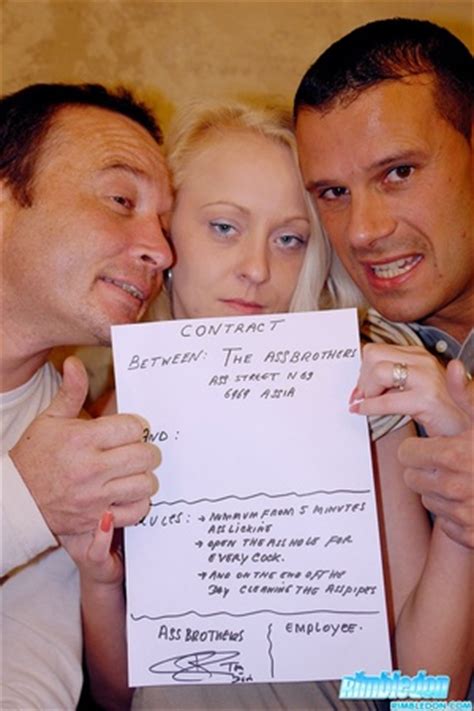 CONTRACT
BETWEEN: THE ASSBROTHERS
ASS STREET N 69
6969 ASSIA
AND:
RULES: → MINIMUM FROM 5 MINUTES
ASSLICKING
→ OPEN THE ASSHOLE FOR
EVERY COCK.
→ AND ON THE END OFF THE
DAY CLEANING THE ASSPIPES
ASSBROTHERS
EMPLOYEE.
Rimbledon
RIMBLEDON.COM